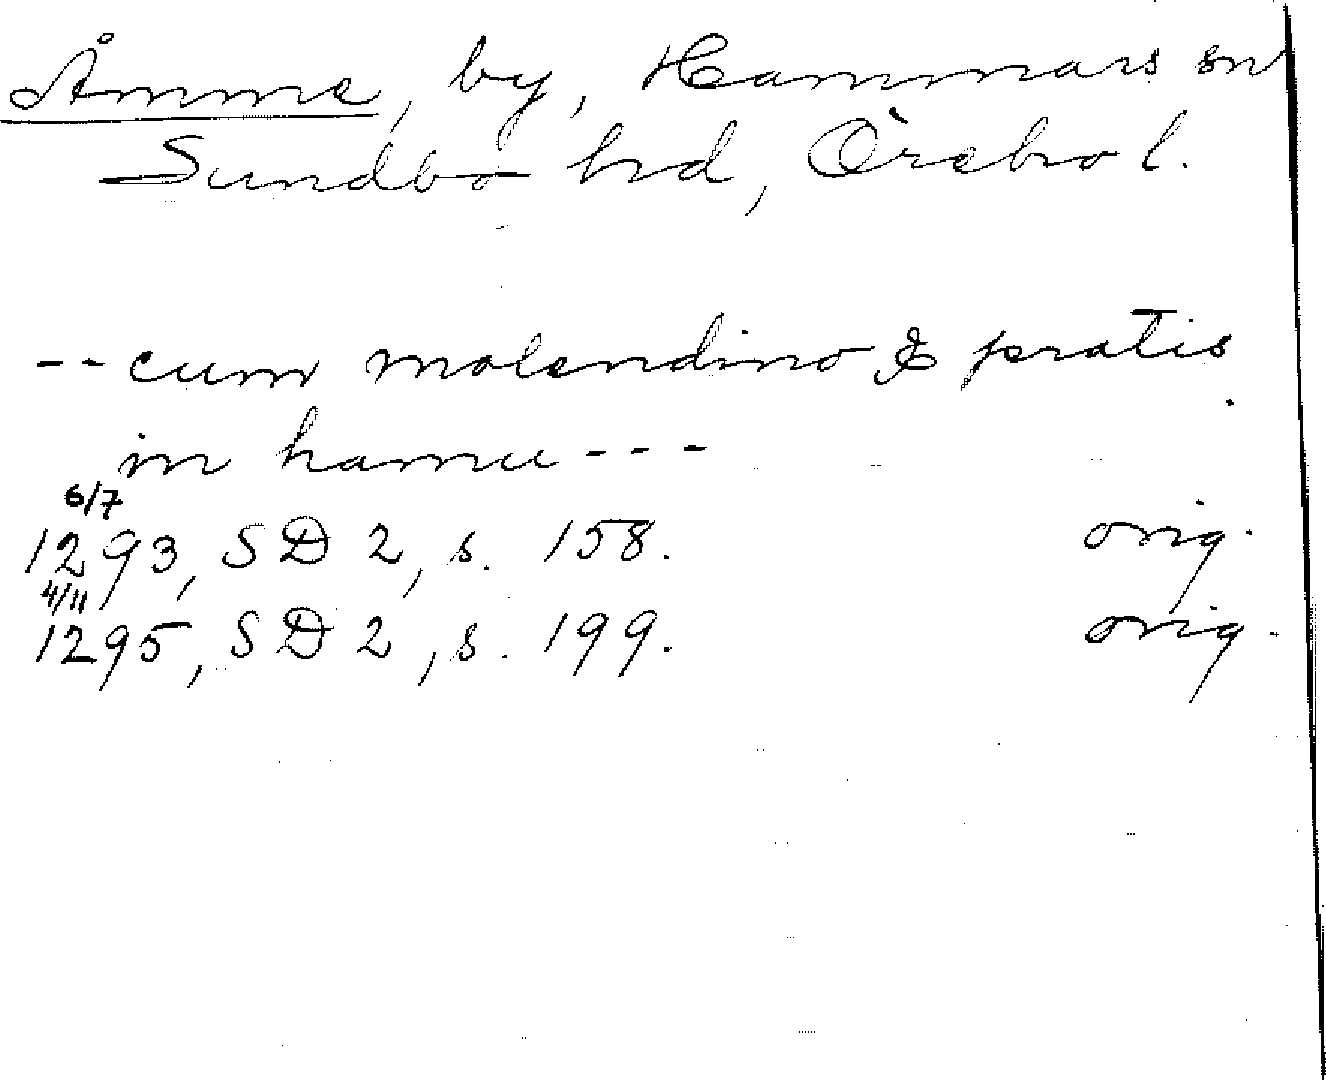 Åmme, by, Hammars sn
Sundbo hd, Örebro l.
-- cum molendino & pratis
in hamu ---
6/7
1293, SD 2, s. 158. orig.
4/11
1295, SD 2, s. 199. orig.